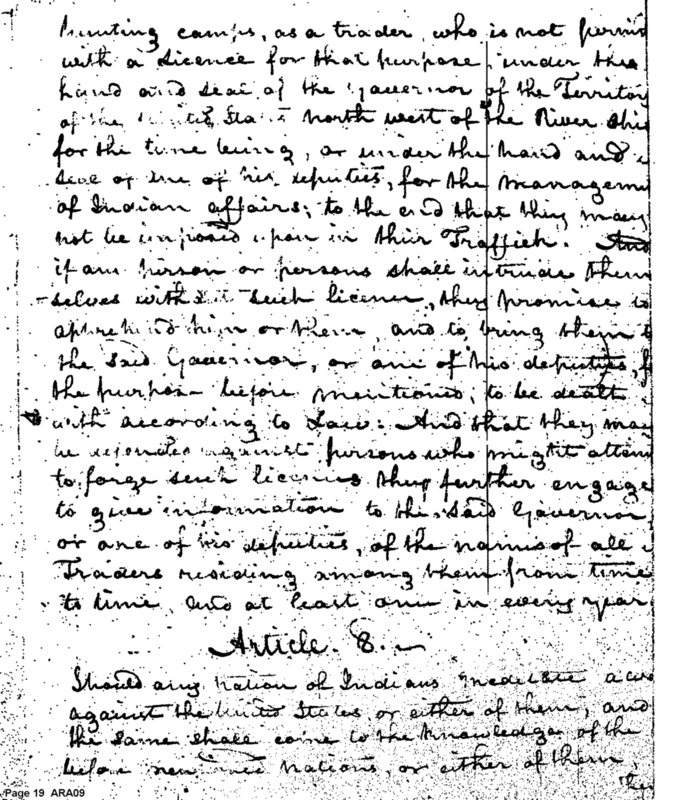 hunting camps, as a trader, who is not permi
with a Licence for that purpose, under the
hand and Seal of the Governor of the Territory
of the United States North west of the River Ohi
for the time being, or under the hand and
Seal of one of his deputies, for the managem
of Indian affairs; to the end that they may
not be imposed upon in their Traffick. And
if any person or persons shall intrude them
-selves without such licence, they promise to
apprehend him or them, and to bring them t
the said Governor, or one of his deputies, f
the purpose before mentioned, to be dealt
with according to Law: And that they may
be against persons who might attem
to forge such licences they further engage
to give information to the said Governor,
or one of his deputies, of the names of all
Traders residing among them from time
to time, at least once in every year
Article. 8.
Should any Nation of Indians meditate a wa
against the United States or either of them, and
the same shall come to the knowledge of the
before mentioned Nations, or either of them,
they
Page 19 ARA09